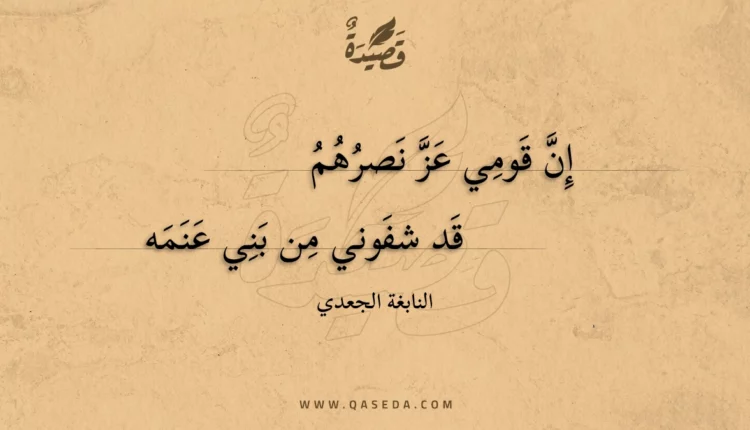 قَصِيْدَةٌ
إِنَّ قَومِي عَزَّ نَصرُهُمُ
قَد شفَوني مِن بَنِي عَنَمَه
النابغة الجعدي
WWW.QASEDA.COM